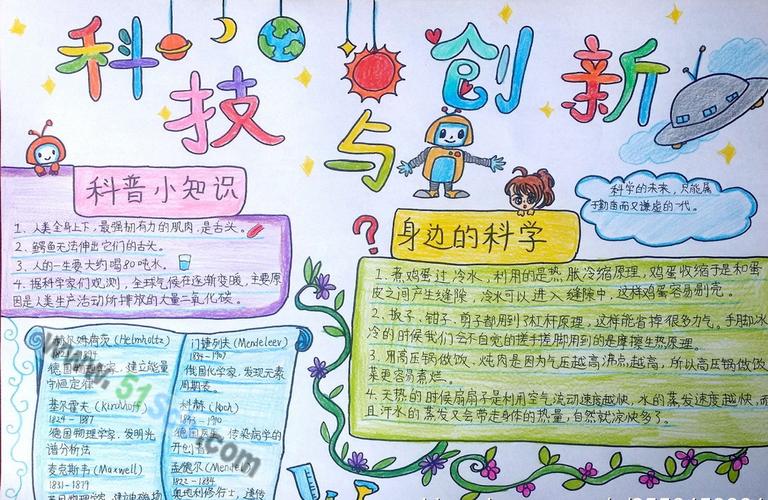 科技与创新
科普小知识
1、人类全身上下，最强韧有力的肌肉，是舌头。
2、鳄鱼无法伸出它们的舌头。
3、人的一生要大约喝80吨水。
4、据科学家们观测，全球气候在逐渐变暖，主要原
因是人类生产活动所排放的大量二氧化碳。
科学的未来，只能属
于勤奋而又谦虚的一代。
?
身边的科学
1、煮鸡蛋过冷水，利用的是热胀冷缩原理，鸡蛋收缩于是和蛋
皮之间产生缝隙，冷水可以进入缝隙中，这样鸡蛋容易剥壳。
2、扳子、钳子、剪子都用到了杠杆原理，这样能省掉很多力气。手脚冰
冷的时候我们会不自觉的搓手搓脚用到的是摩擦生热原理。
3、用高压锅做饭、炖肉是因为气压越高沸点越高，所以高压锅做饭
菜更容易煮烂。
4、天热的时候扇扇子是利用空气流动速度越快，水的蒸发速度越快，而
且汗水的蒸发又会带走身体的热量，自然就凉快多了。
赫尔姆荷茨(Helmholtz)
德国 学家，建立能量
守恒定律
基尔霍夫(Kirchhoff)
1824-1887
德国物理学家，发明光
谱分析法
麦克斯韦(Maxwell)
1831-1879
门捷列夫(Mendeleev)
1834-1907
俄国化学家，发现元素
周期表。
科赫(Koch)
1843-1910
德国医 传染病学的
开创者
孟德尔(Mendel)
1822-1884
奥地利修行士，遗传
www.51 .com